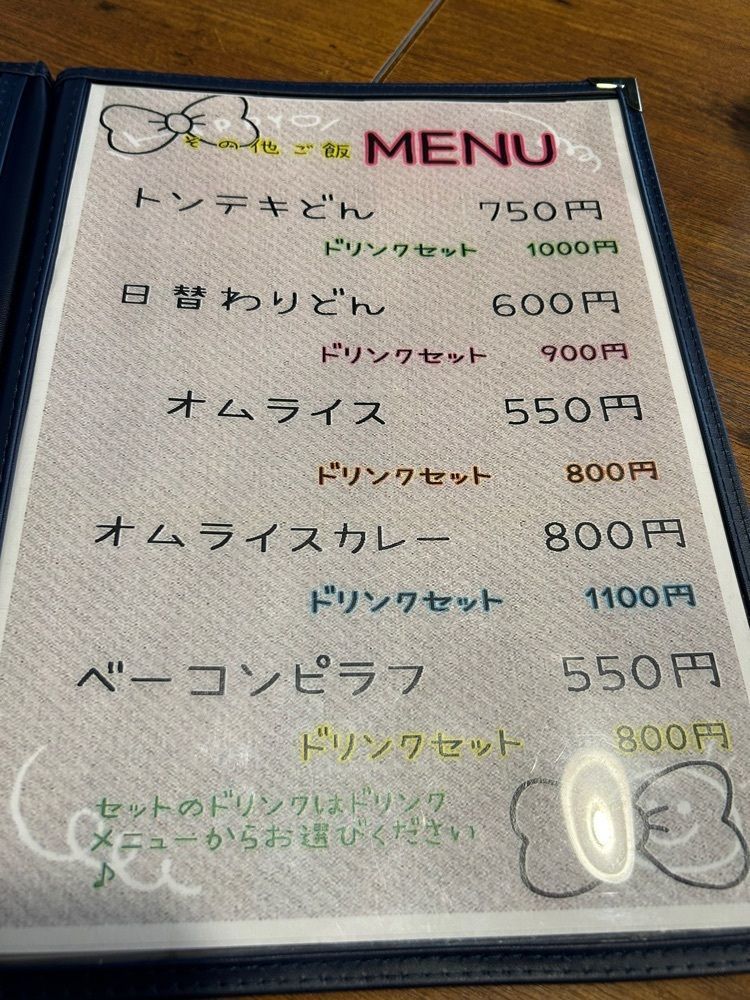 その他ご飯 MENU
トンテキどん 750円
ドリンクセット 1000円
日替わりどん 600円
ドリンクセット 900円
オムライス 550円
ドリンクセット 800円
オムライスカレー 800円
ドリンクセット 1100円
ベーコンピラフ 550円
ドリンクセット 800円
セットのドリンクはドリンク
メニューからお選びください
♪